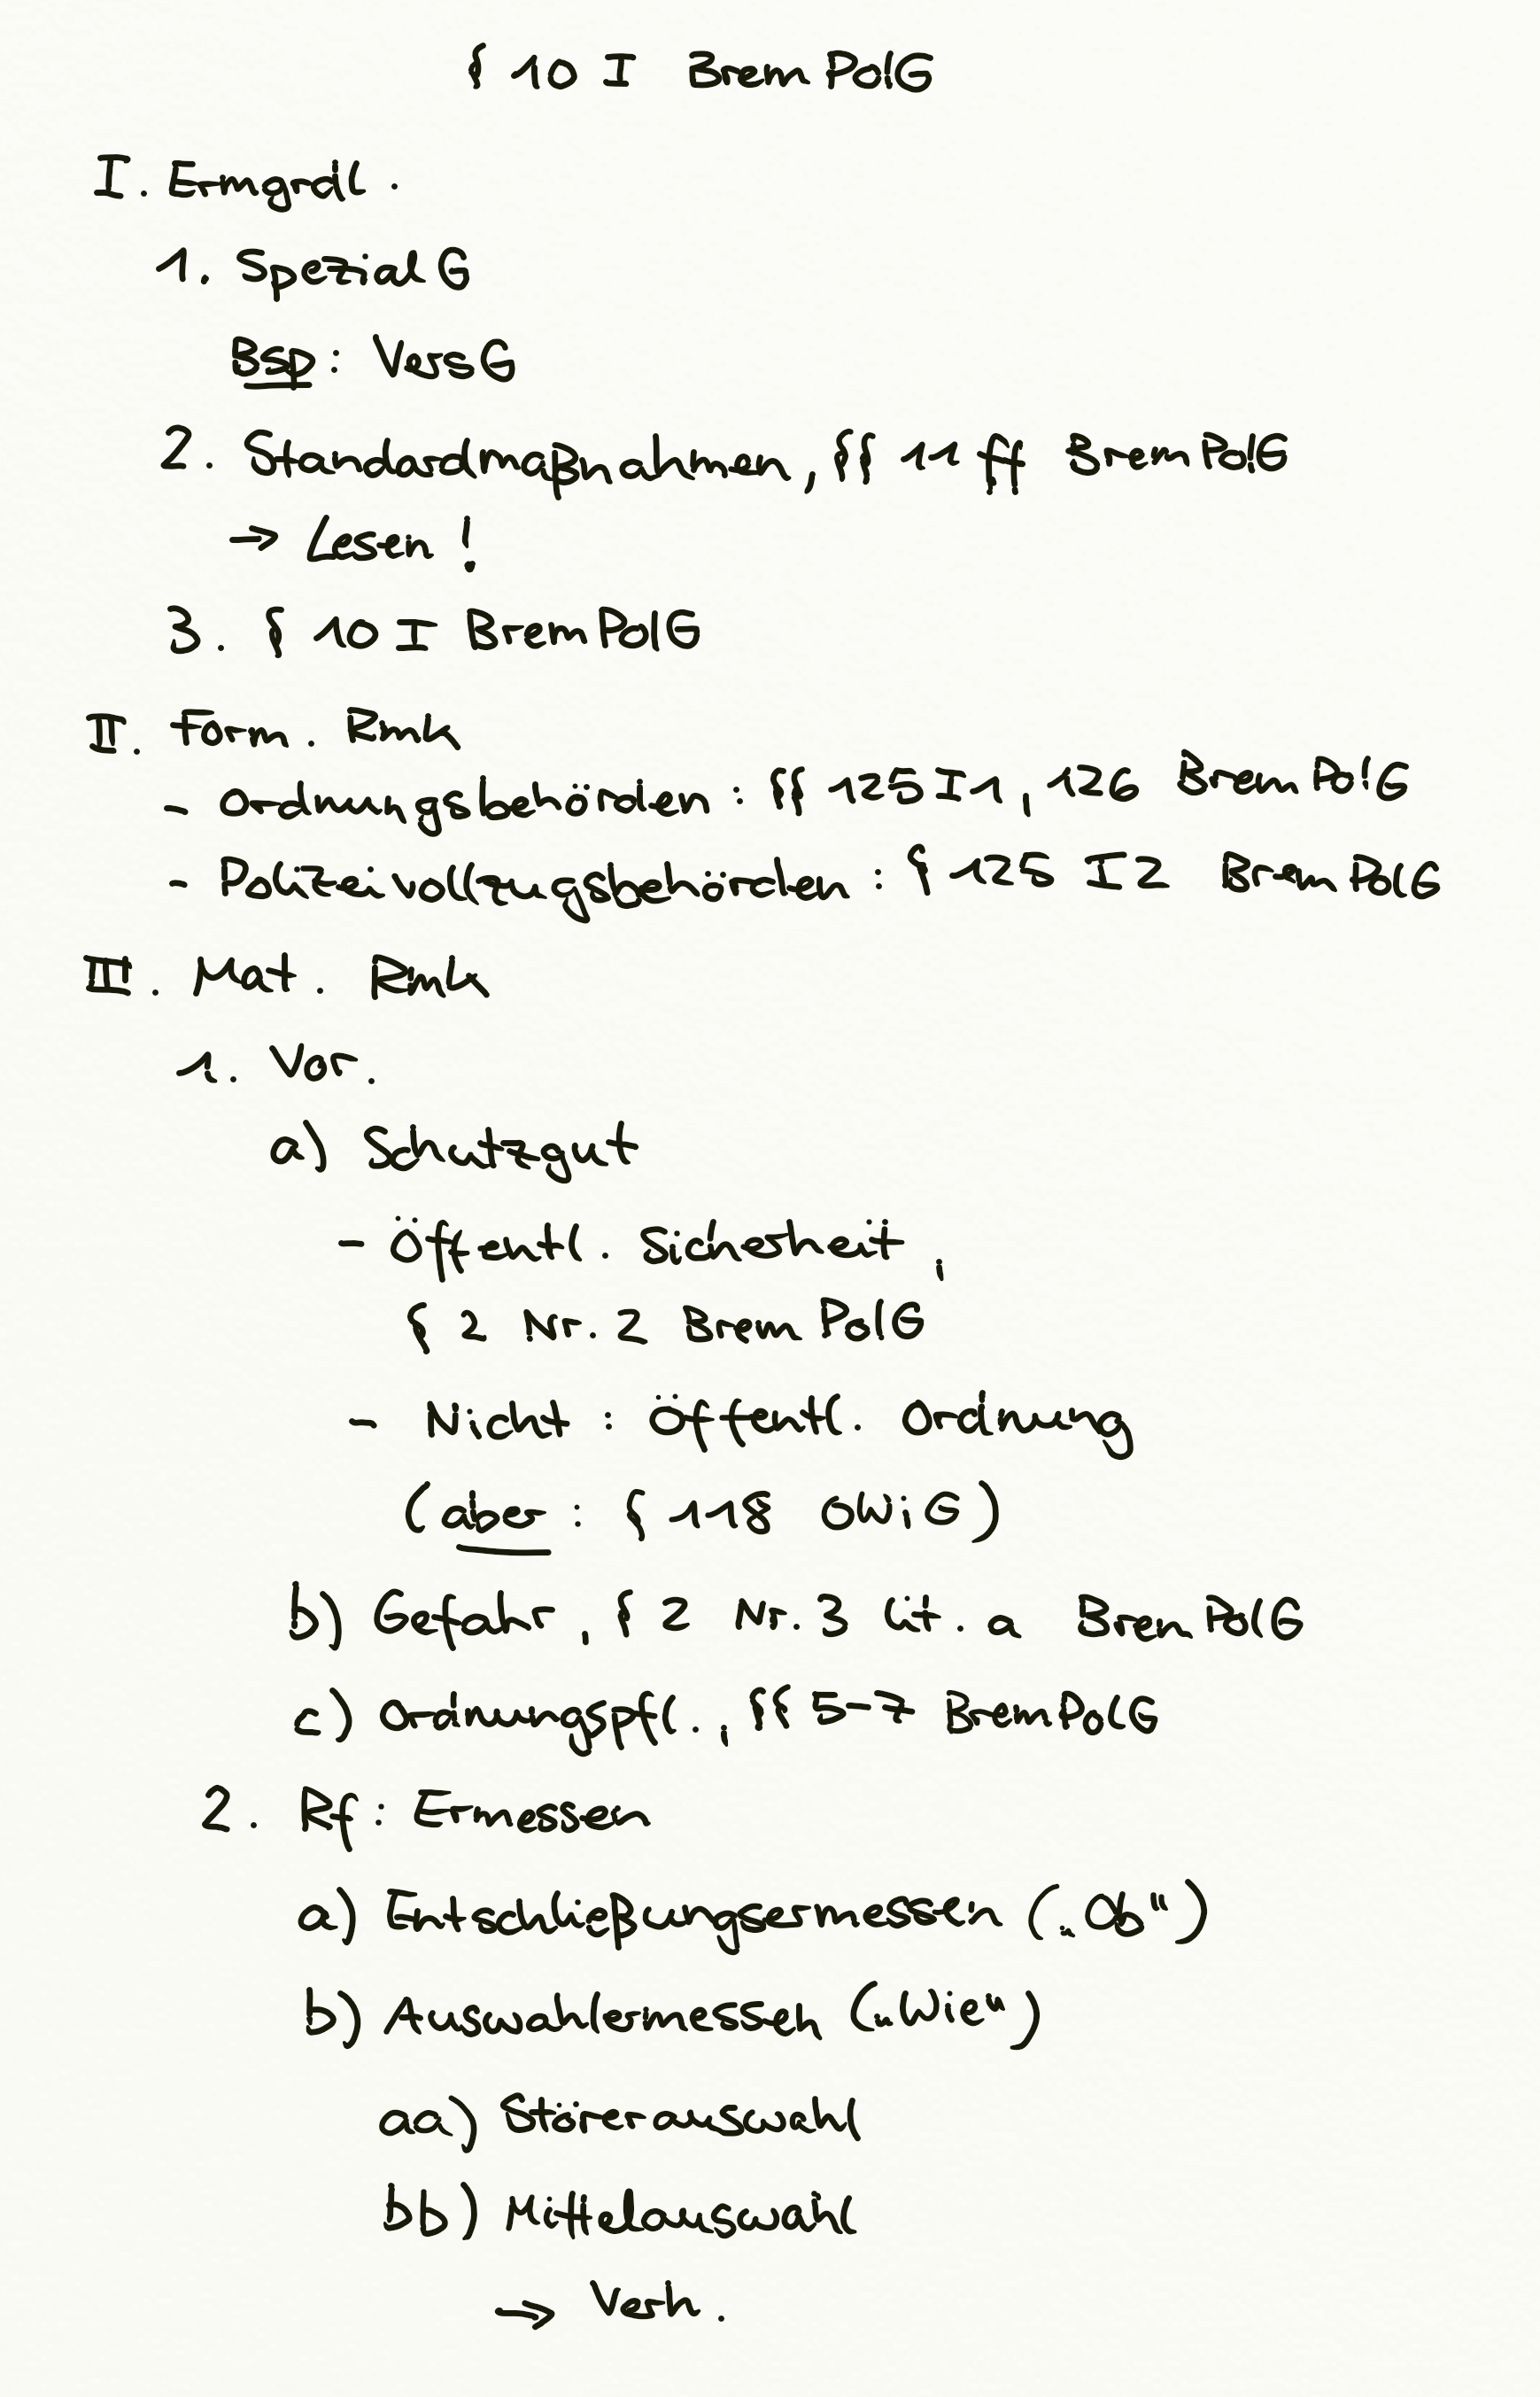 § 10 I BremPolG
I. Ermgrdl.
1. SpezialG
Bsp: VersG
2. Standardmaßnahmen, §§ 11 ff BremPolG
→ Lesen!
3. § 10 I BremPolG
II. Form. Rmk
- Ordnungsbehörden: §§ 125 I 1, 126 BremPolG
- Polizeivollzugsbehörden: § 125 I 2 BremPolG
III. Mat. Rmk
1. Vor.
a) Schutzgut
- Öffentl. Sicherheit,
§ 2 Nr. 2 BremPolG
- Nicht: Öffentl. Ordnung
(aber: § 118 OWiG)
b) Gefahr, § 2 Nr. 3 lit. a BremPolG
c) Ordnungspfl., §§ 5-7 BremPolG
2. Rf: Ermessen
a) Entschließungsermessen („Ob“)
b) Auswahlermessen („Wie“)
aa) Störerauswahl
bb) Mittelauswahl
→ Verh.